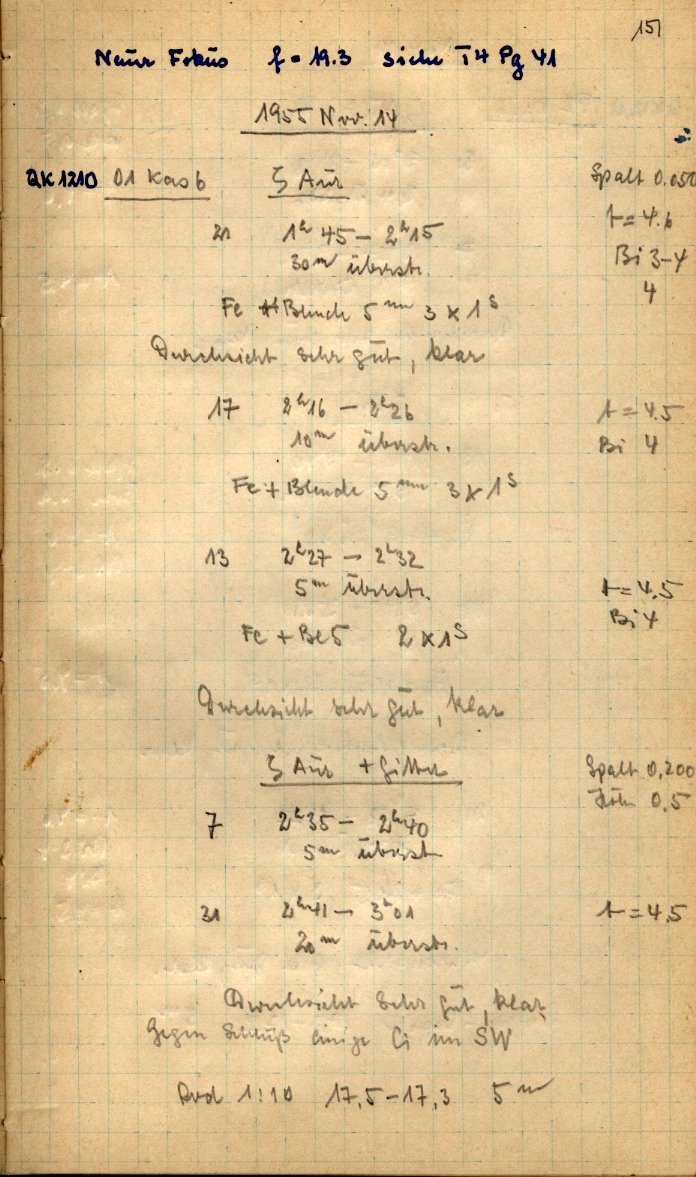 151
Neuer Fokus f = 19.3 siehe T4 Pg 41
1955 Nov. 14
QK1210 01 Kas b ζ Aur Spalt 0.050
21 1h 45 – 2h 15 t = 4.6
30m überstr. Bi 3–4
4
Fe + Blende 5 mm 3 x 1s
Durchsicht sehr gut, klar
17 2h16 – 2h26 t = 4.5
10m überstr. Bi 4
Fe + Blende 5 mm 3 x 1s
13 2h27 – 2h32
5m überstr. t = 4,5
Bi 4
Fe + Be 5 2 x 1s
Durchsicht sehr gut, klar
ζ Aur + Gitter Spalt 0,200
0,5
7 2h35 – 2h40
5m überst
31 2h41 – 3h01 t = 4,5
20m überstr.
Durchsicht sehr gut, klar
Gegen Schluß einige Ci im SW
1:10 17,5 – 17,3 5m